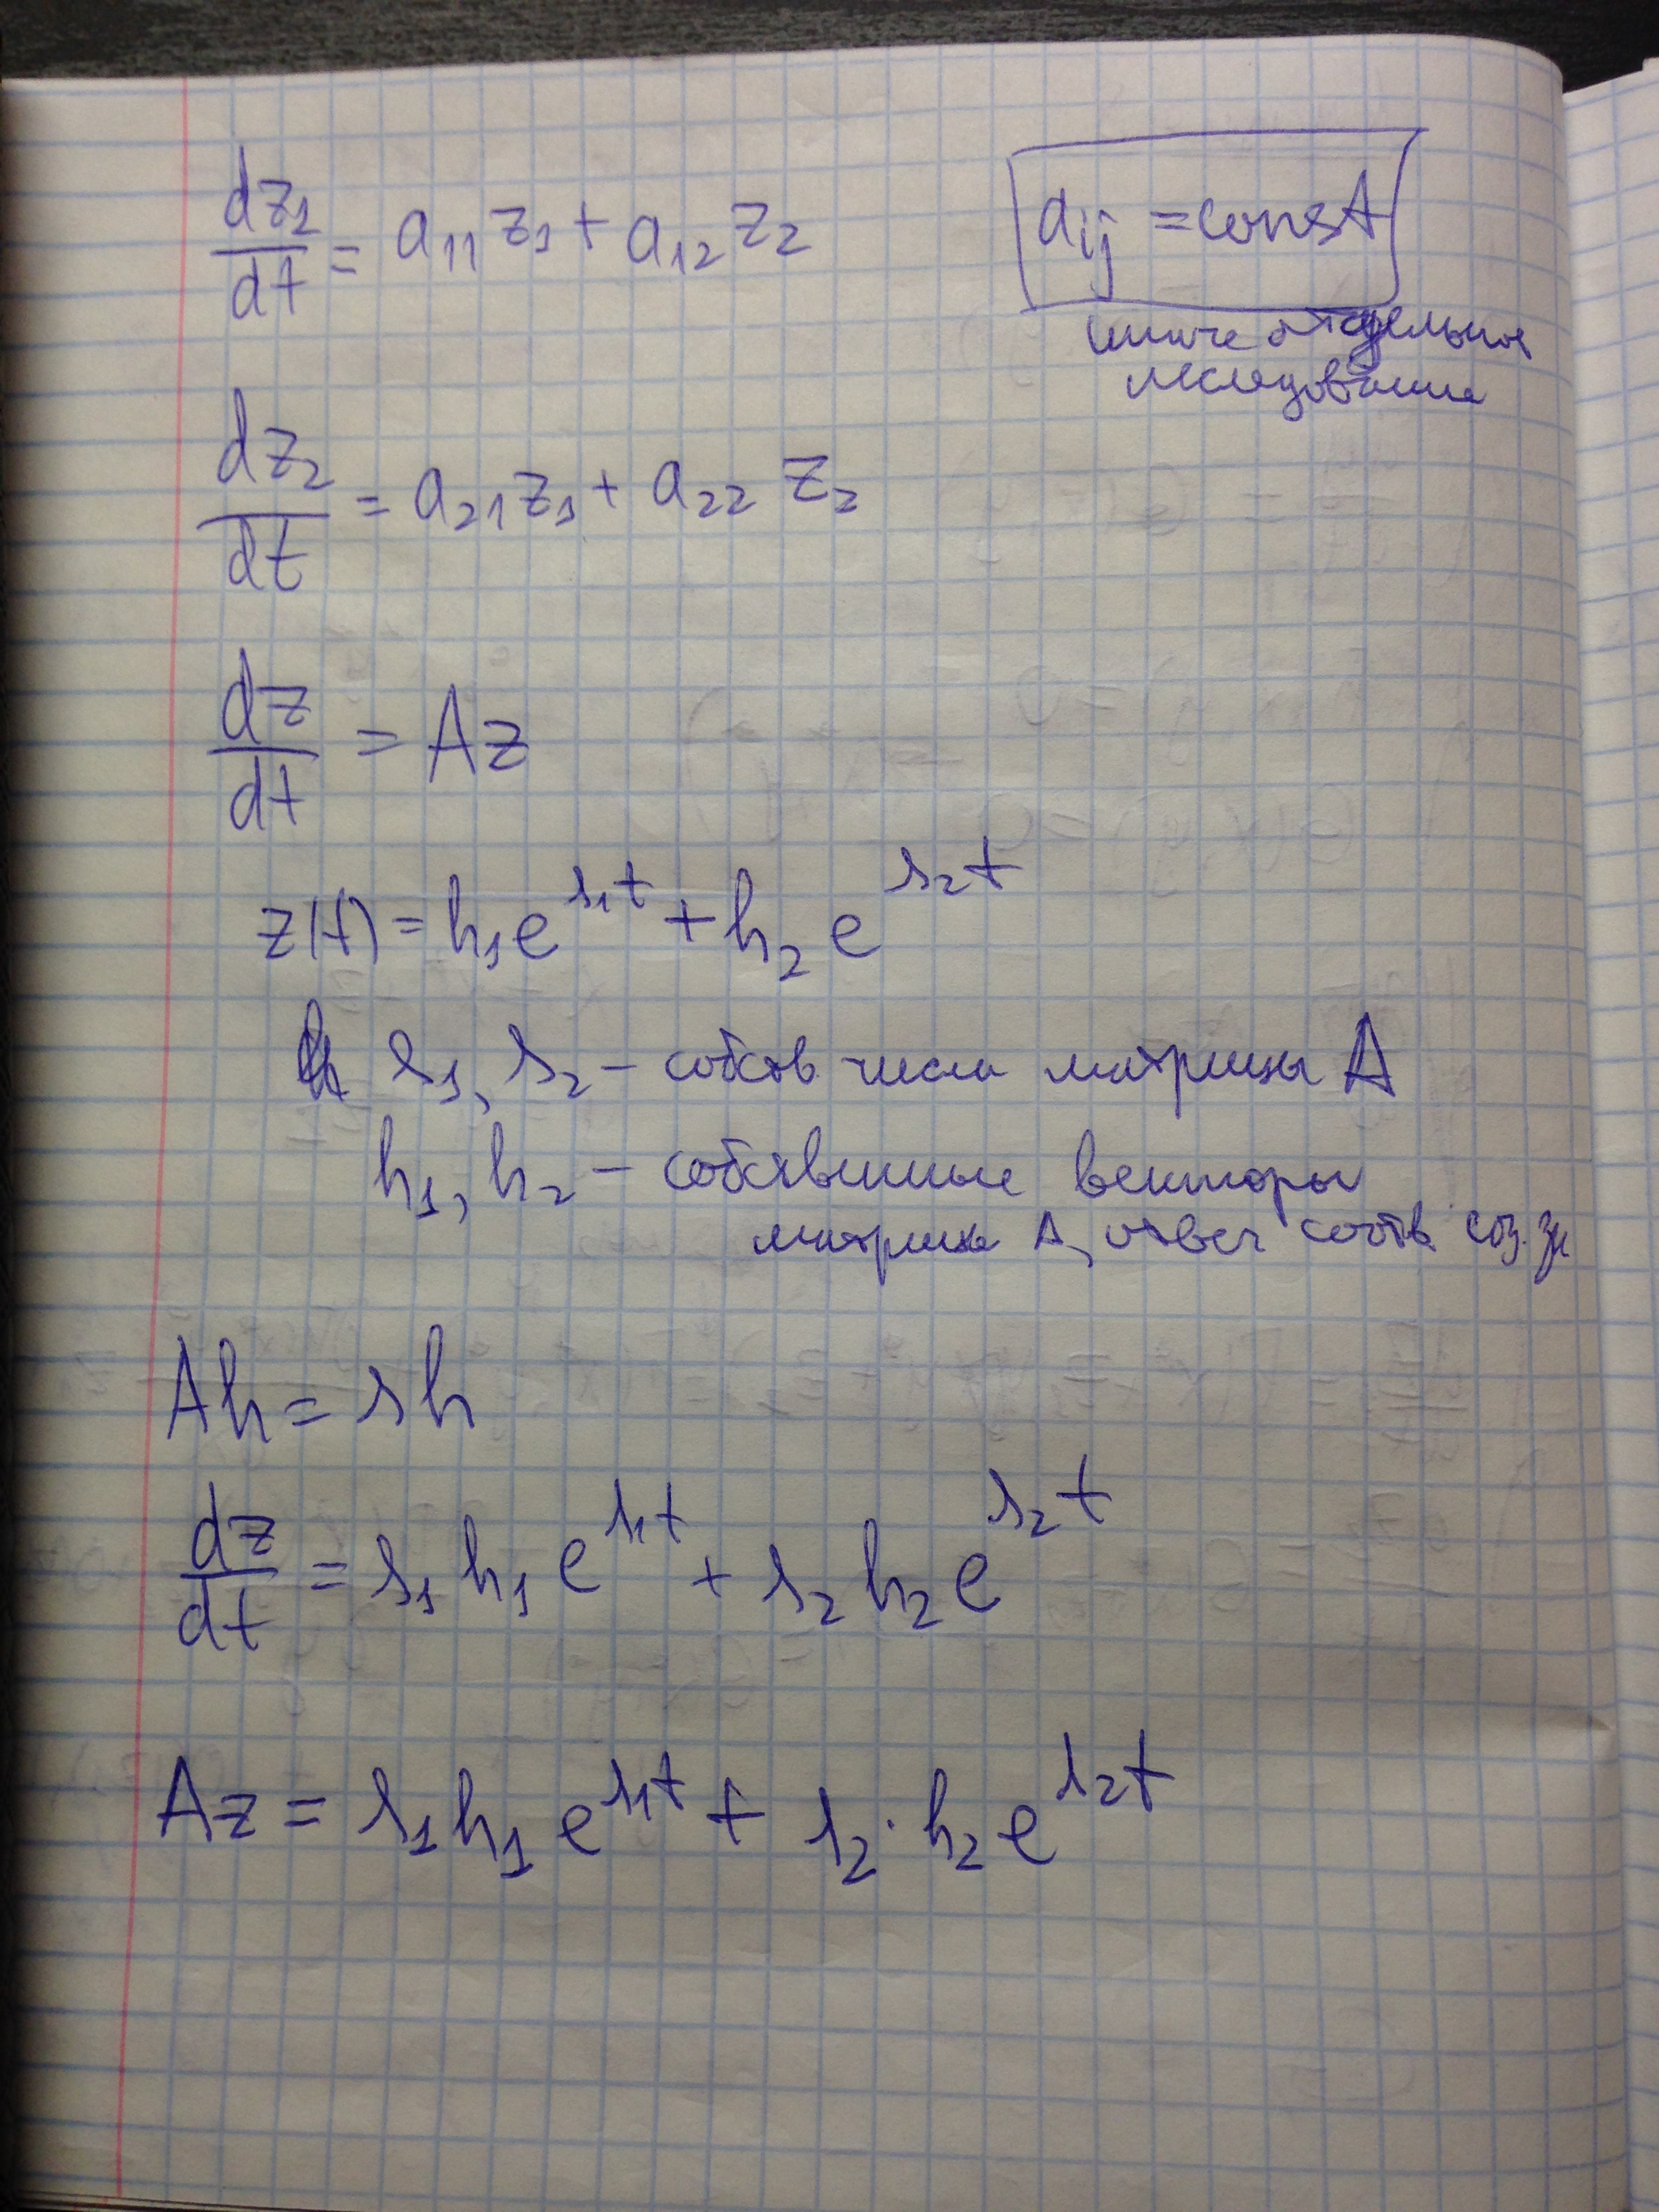 dz₁/dt = a₁₁z₁ + a₁₂z₂
aᵢⱼ = const
иначе отдельное
исследование
dz₂/dt = a₂₁z₁ + a₂₂z₂
dz/dt = Az
z(t) = h₁e^(s₁t) + h₂e^(s₂t)
s₁, s₂ – собств числа матрицы A
h₁, h₂ – собственные векторы
матрицы A, отвеч соотв.
Ah = sh
dz/dt = s₁h₁e^(s₁t) + s₂h₂e^(s₂t)
Az = s₁h₁e^(s₁t) + s₂·h₂e^(s₂t)